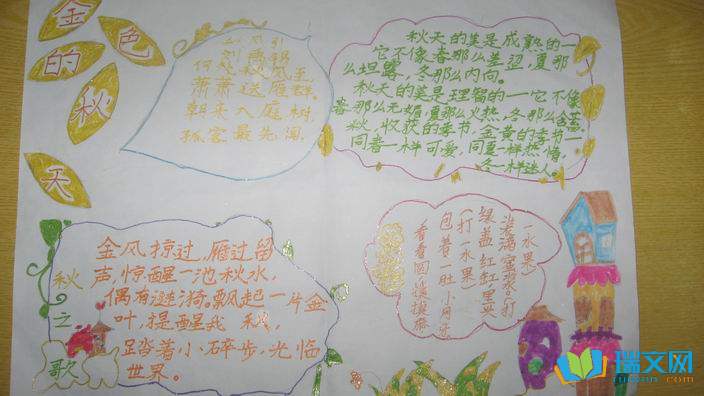 金色
的秋
天
秋风引
刘禹锡
何处秋风至
萧萧送雁群。
朝来入庭树,
孤客最先闻。
秋天的美是成熟的一
它不像春那么羞涩,夏那
么坦露,冬那么内向。
秋天的美是理智的一它不像
春那么妩媚,夏那么火热,冬那么含蓄。
秋,收获的季节,金黄的季节一
同春一样可爱,同夏一样热情,
冬一样迷人。
秋之歌
金风掠过,雁过留
声,惊醒一池秋水,
偶有涟漪。飘起一片金
叶,提醒我 秋,
踏着小碎步,光临
世界。
看看圆 摸摸麻
包着一肚小月牙
(打一水果)
绿盖红缸黑
装满蜜浆(打
一水果)
瑞文网